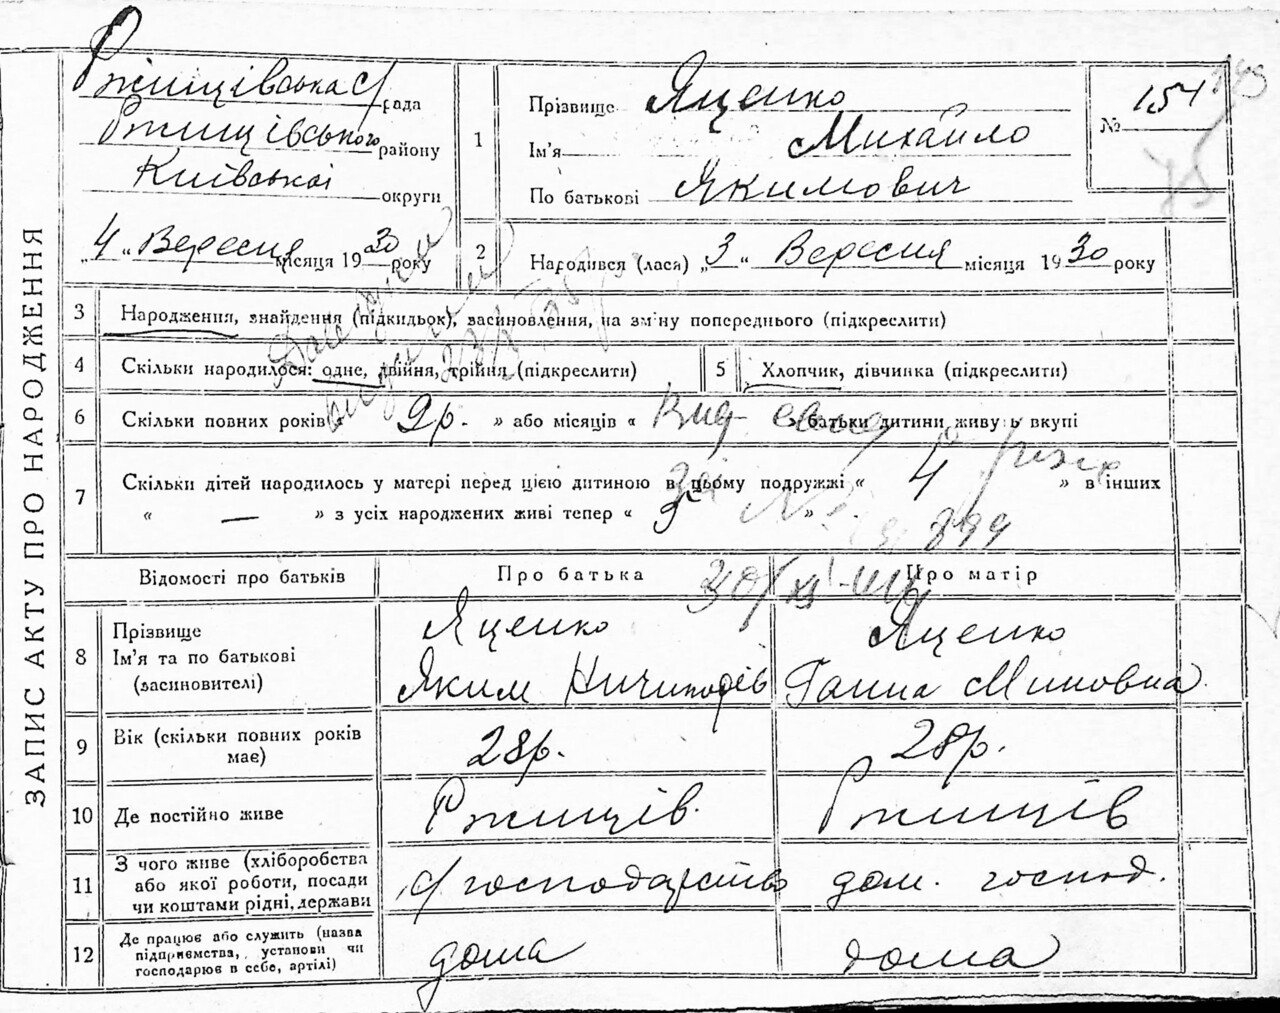 ЗАПИС АКТУ ПРО НАРОДЖЕННЯ
Ржищівська С/рада
Ржищівського району
Київської округи
„4“ Вересня місяця 1930 року
1
Прізвище Яценко
Ім'я Михайло
По батькові Якимович
№ 154
75
2 Народився (лася) „3“ Вересня місяця 1930 року
3 Народження, знайдення (підкидьок), засиновлення, на зміну попереднього (підкреслити)
4 Скільки народилося: одне, двійня, трійня (підкреслити)
5 Хлопчик, дівчинка (підкреслити)
6 Скільки повних років „ 9р. » або місяців « » батьки дитини живуть вкупі
7 Скільки дітей народилось у матері перед цією дитиною в цьому подружжі « 4 » в інших
« — » з усіх народжених живі тепер « 3 »
Вид.
№
899
30/XI
Відомості про батьків Про батька Про матір
8 Прізвище
Ім'я та по батькові
(засиновителі)
Яценко
Яким Ничипорів
Яценко
Ганна Миновна
9 Вік (скільки повних років
має)
28р. 28р.
10 Де постійно живе Ржищів. Ржищів
11 З чого живе (хліборобства
або якої роботи, посади
чи коштами рідні, держави
с/господарство дом. господ.
12 Де працює або служить (назва
підприємства, установи чи
господарює в себе, артілі)
дома дома